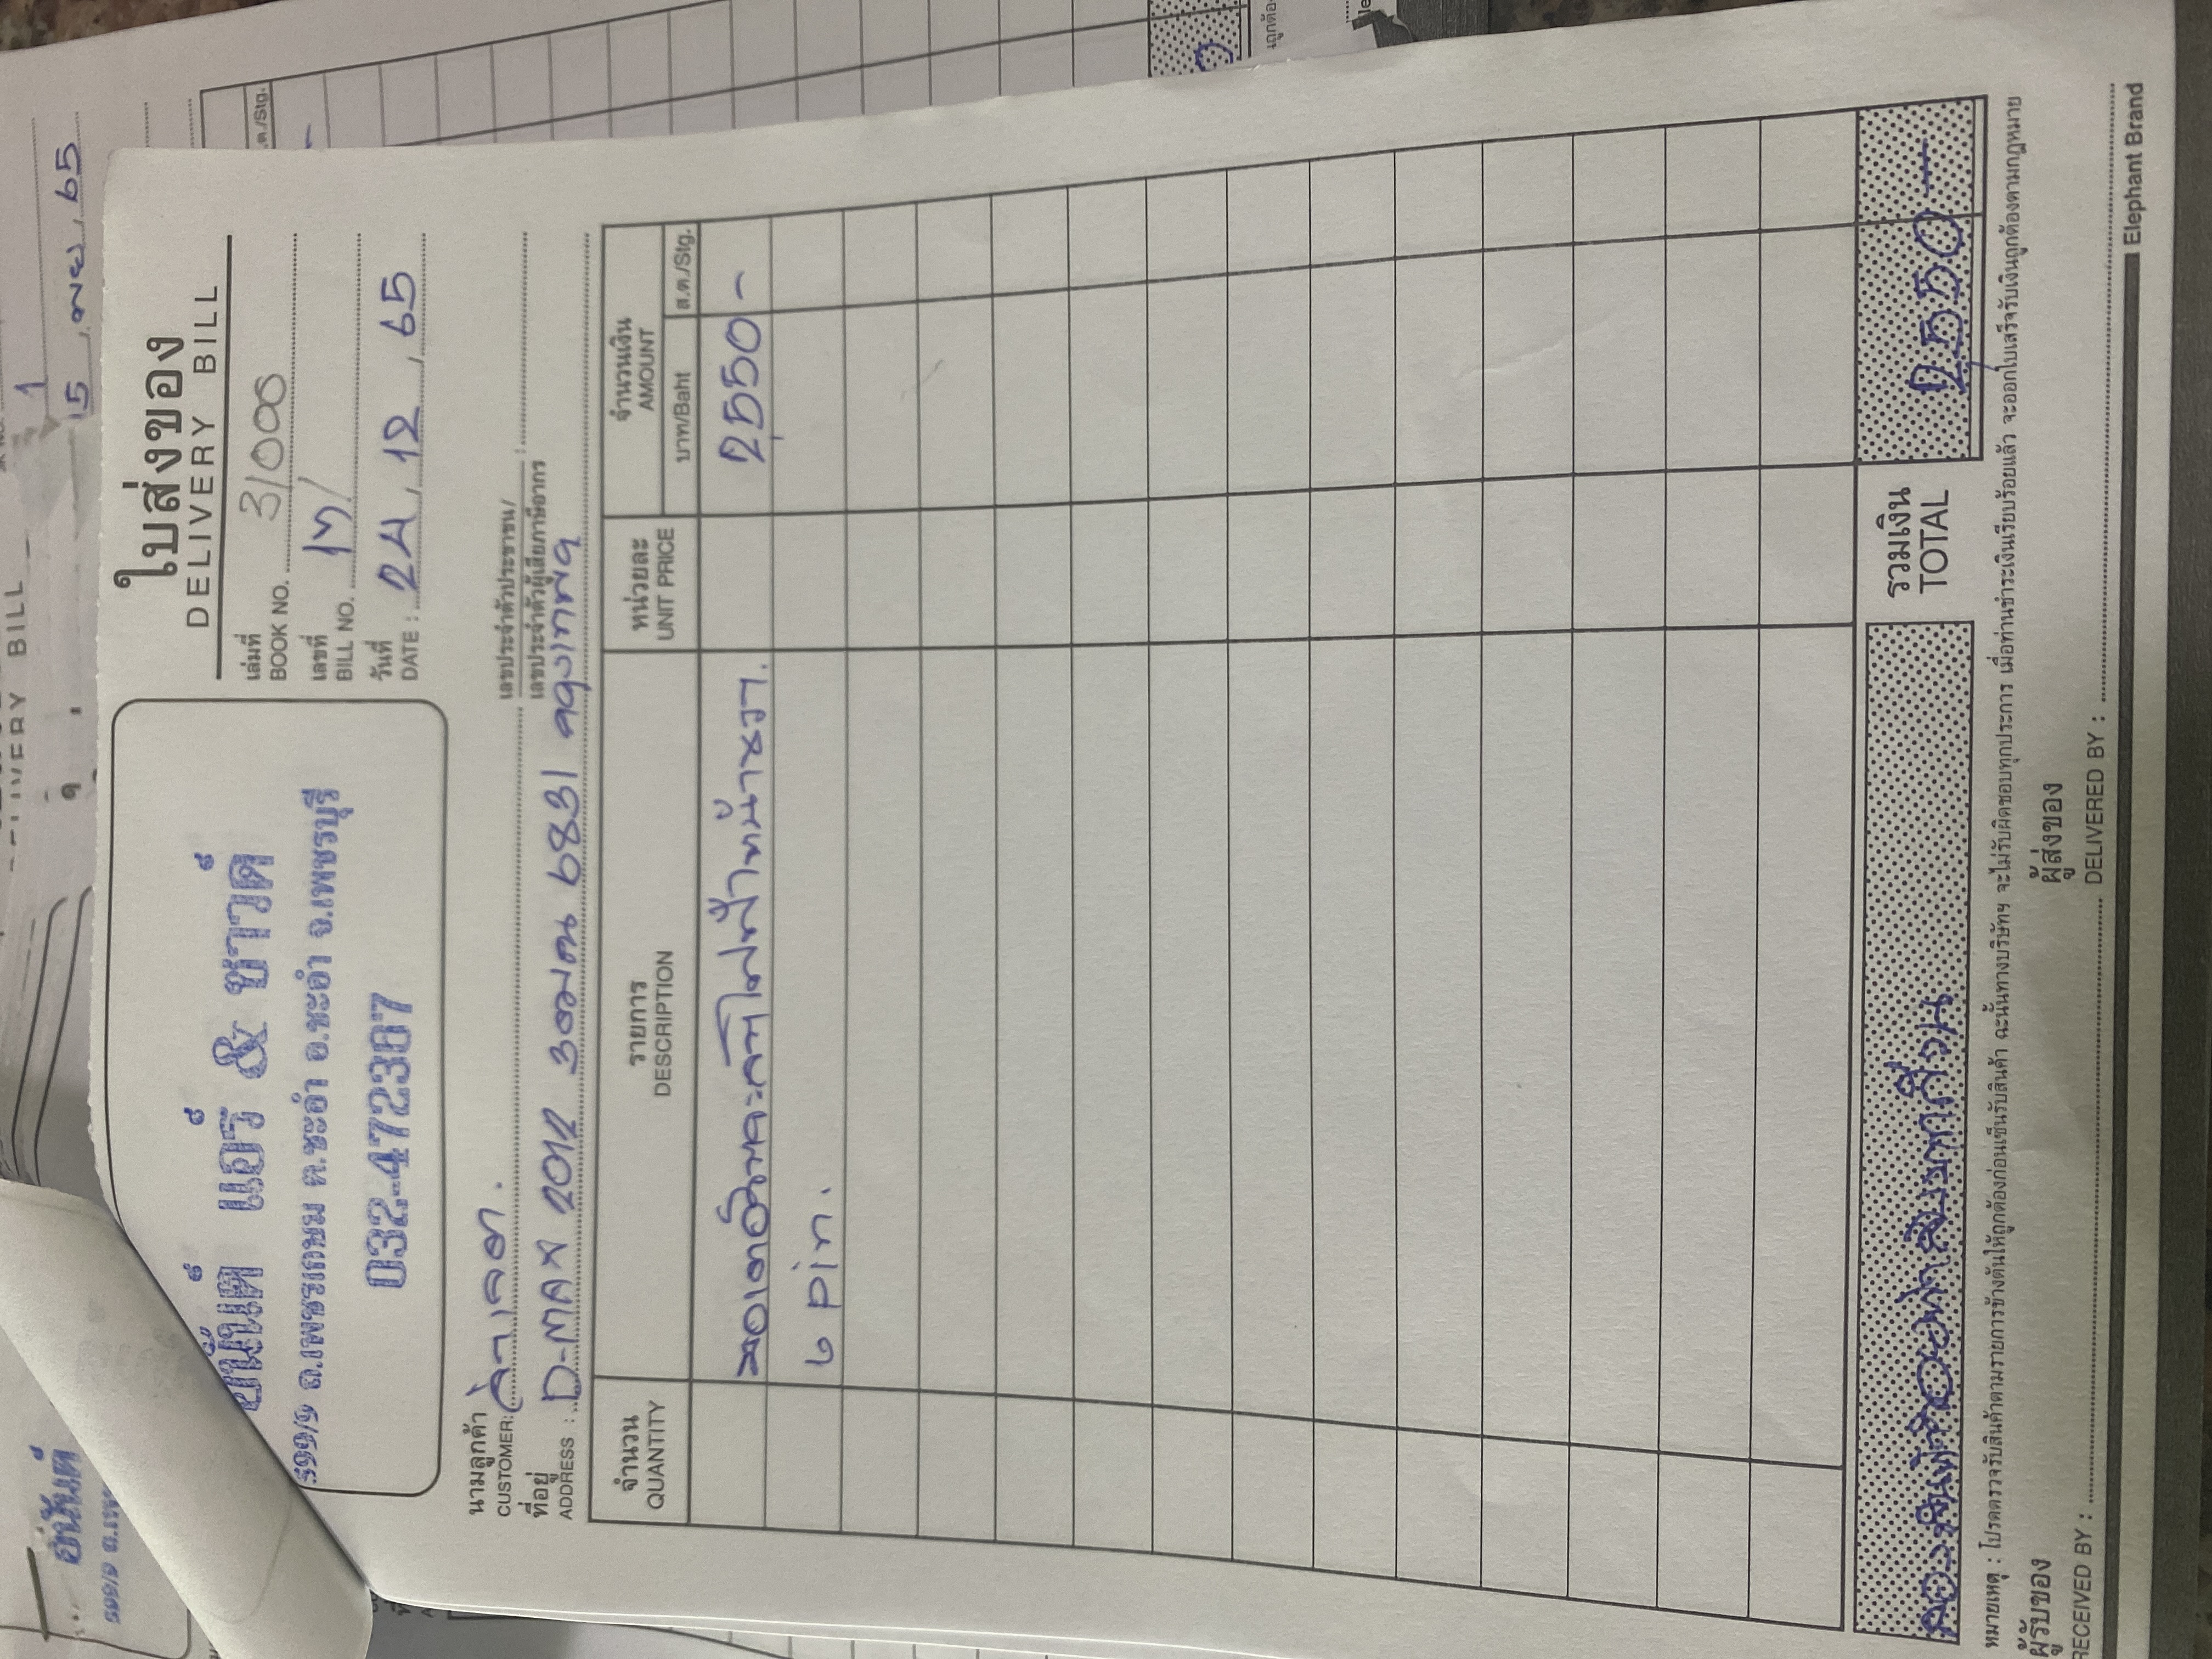 ใบส่งของ
DELIVERY BILL
อนันต์ แอร์ & ซาวด์
ถ.เพชรเกษม ต.ชะอำ อ.ชะอำ จ.เพชรบุรี
032-472307
เล่มที่
BOOK NO. 31000
เลขที่
BILL NO.
วันที่
DATE : 24, 12, 65
นามลูกค้า
CUSTOMER:
เลขประจำตัวประชาชน/
เลขประจำตัวผู้เสียภาษีอากร :
ที่อยู่
ADDRESS : D-MAX 2012 6831
จำนวน
QUANTITY
รายการ
DESCRIPTION
หน่วยละ
UNIT PRICE
จำนวนเงิน
AMOUNT
บาท/Baht
ส.ต./Stg.
ไฟฟ้าหน้าขวา. 2550 -
6 pin.
สองพันห้าร้อยห้าสิบบาทถ้วน
รวมเงิน
TOTAL
2550 -
หมายเหตุ : โปรดตรวจรับสินค้าตามรายการข้างต้นให้ถูกต้องก่อนเซ็นรับสินค้า ฉะนั้นทางบริษัทฯ จะไม่รับผิดชอบทุกประการ เมื่อท่านชำระเงินเรียบร้อยแล้ว จะออกใบเสร็จรับเงินถูกต้องตามกฎหมาย
ผู้รับของ
RECEIVED BY :
ผู้ส่งของ
DELIVERED BY :
Elephant Brand
15, 65
อนันต์